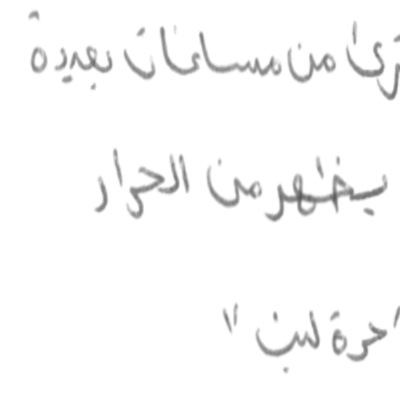 ترى من مسافات بعيدة
يظهر من الحرار
"حرة لبن"